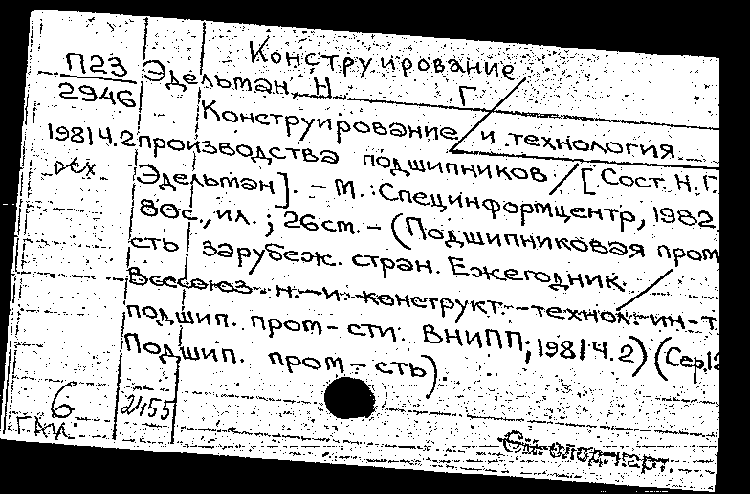 Конструирование
П23 Эдельман, Н Г
2946 Конструирование и технология
1981ч.2 производства подшипников. / [Сост. Н.Г.
Эдельман]. – М.: Специнформцентр, 1982
80с., ил.; 26см. – (Подшипниковая пром
сть зарубеж. стран. Ежегодник. /
Всесоюз. н.-и. конструкт.-технол. ин-т
подшип. пром-сти. ВНИПП; 1981ч.2) (Сер.12
Подшип. пром-сть).
6 2455
См. след. карт.